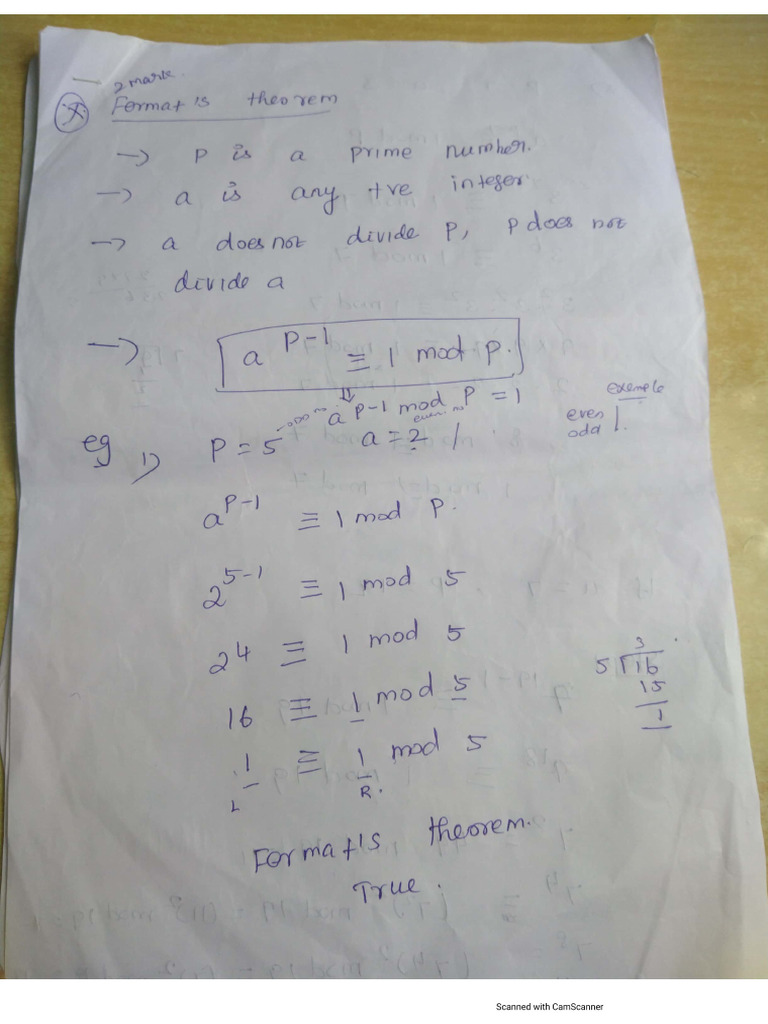 — 2 mark.
* Format's theorem
→ P is a prime number.
→ a is any +ve integer
→ a does not divide P, P does not
divide a
→ a^P-1 ≡ 1 mod P.
⇓
a^P-1 mod P = 1
example
even
odd 1.
eg 1) P = 5 a = 2 /
a^P-1 ≡ 1 mod P.
2^5-1 ≡ 1 mod 5
2^4 ≡ 1 mod 5
16 ≡ 1 mod 5
3
5 √16
15
1
1 ≡ 1 mod 5
L R.
Format's theorem.
True.
Scanned with CamScanner